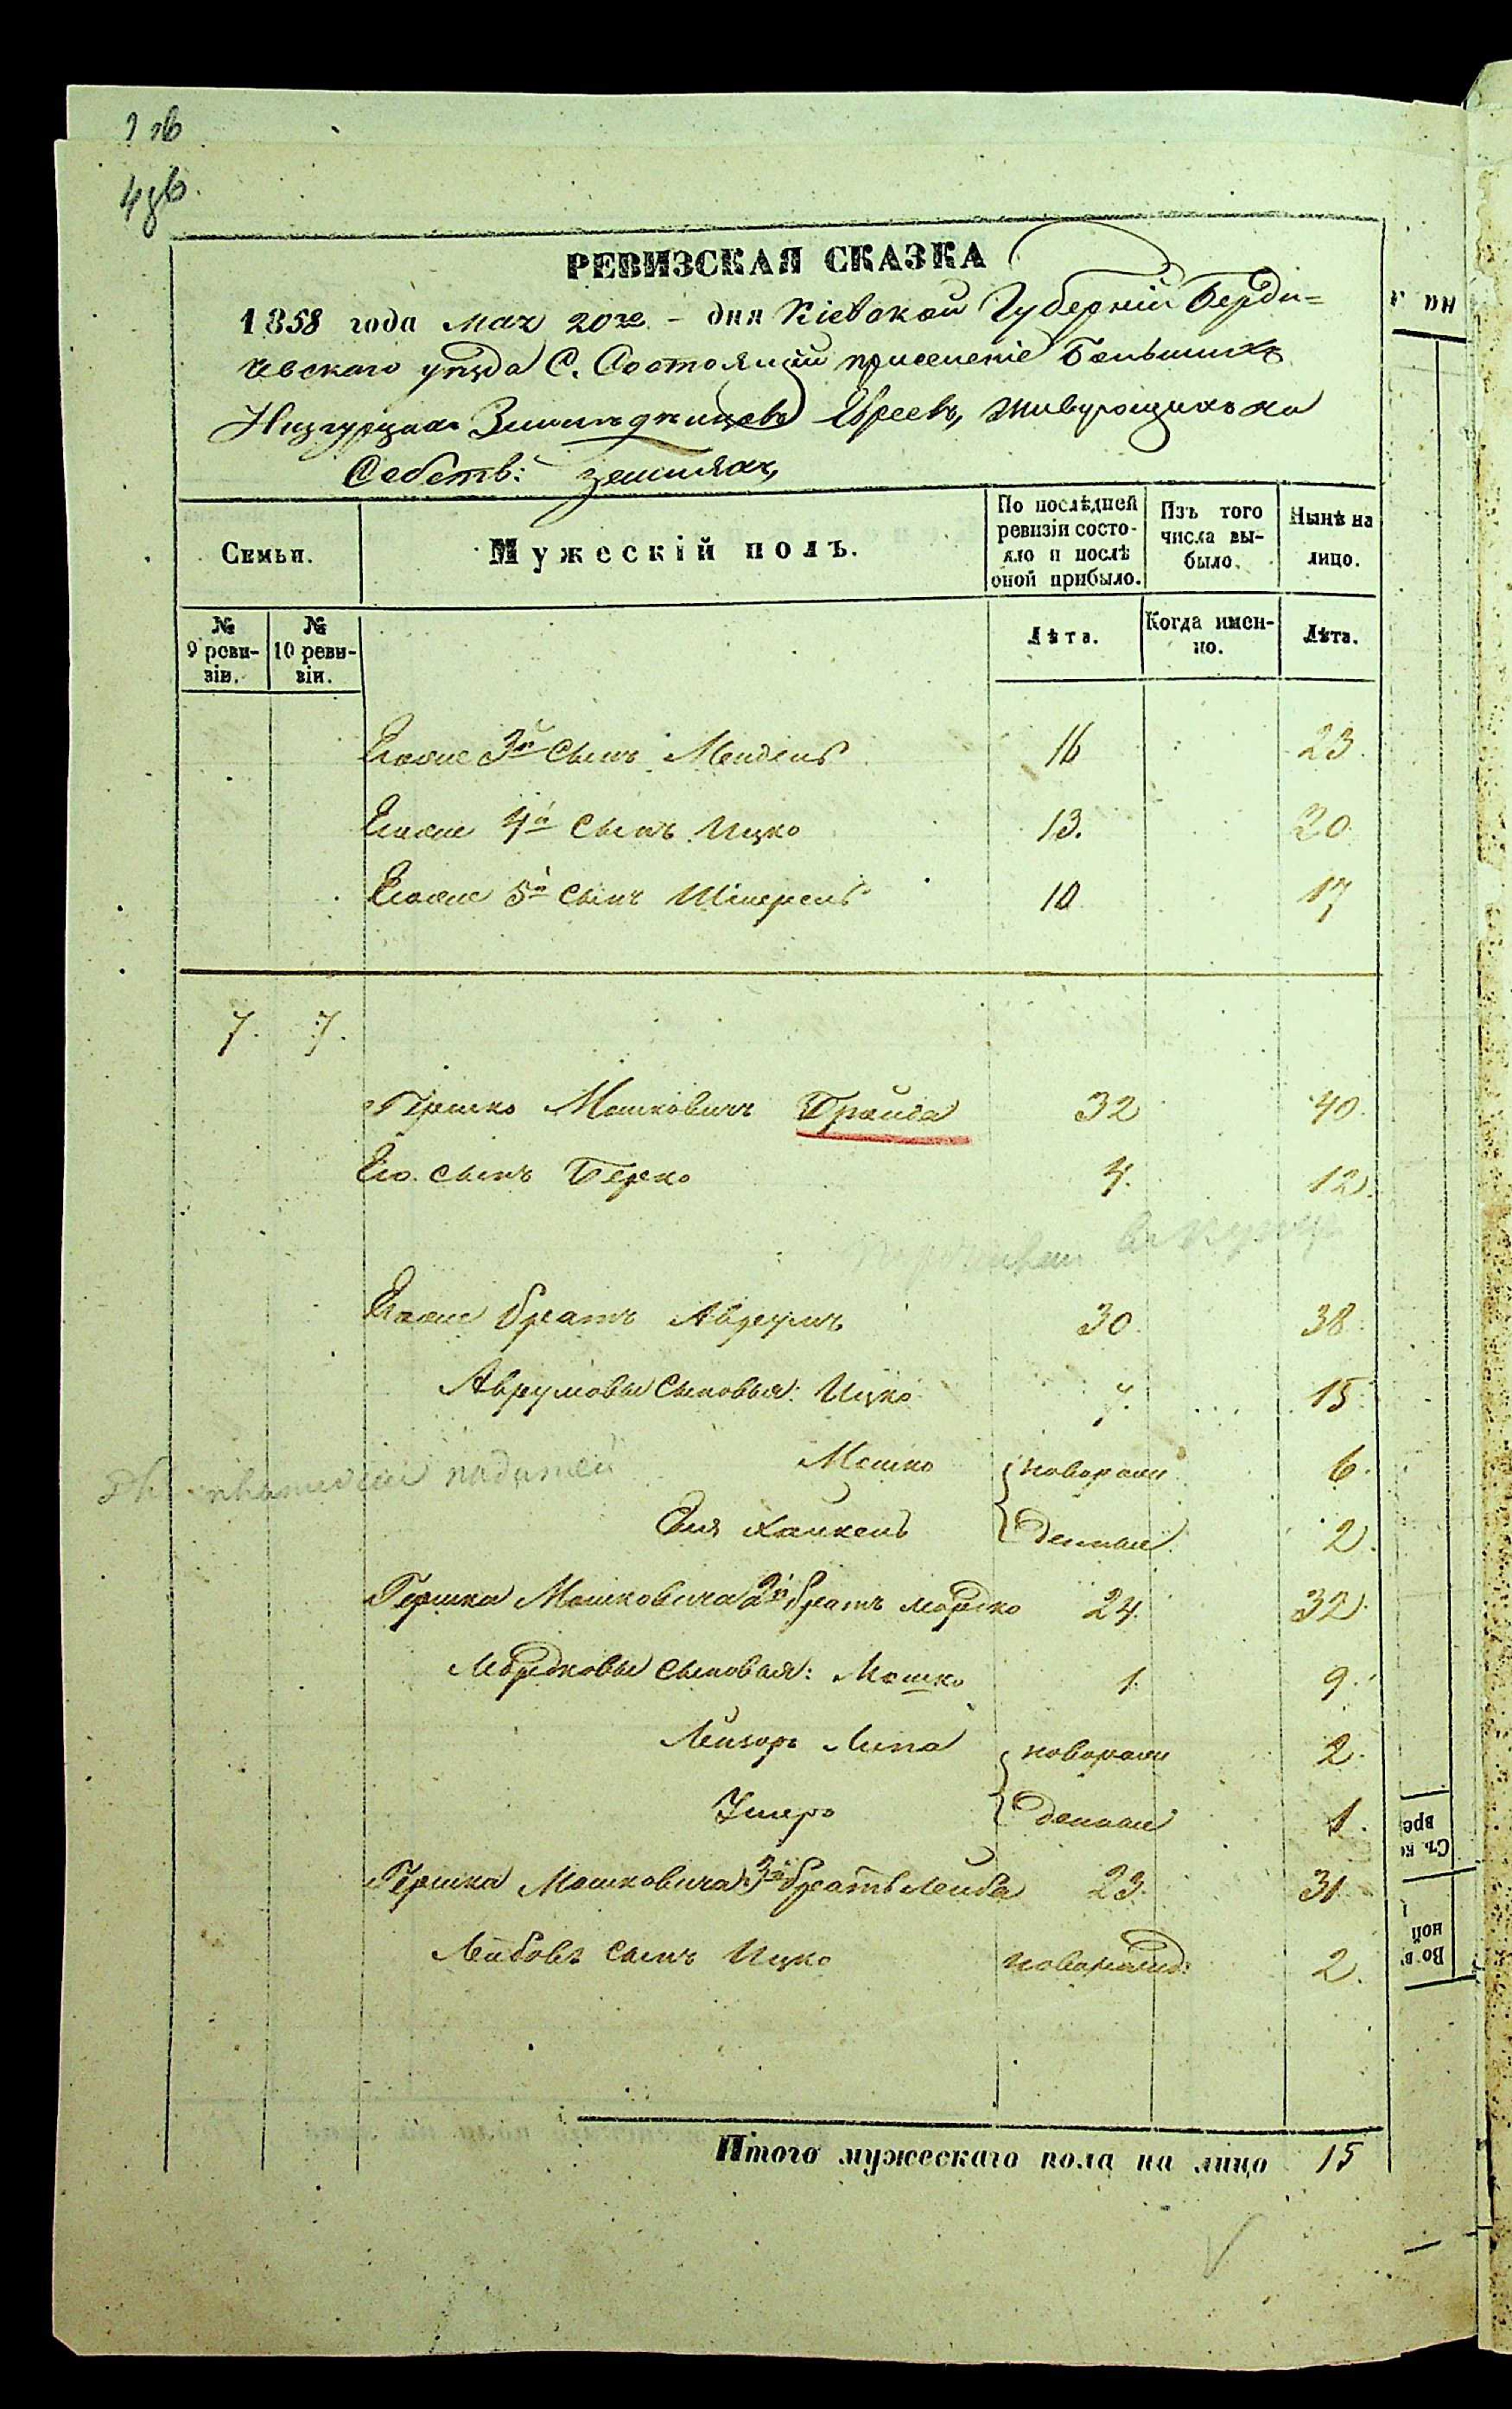 РЕВИЗСКАЯ СКАЗКА
1858 года Мая 20го - дня Кіевской Губерніи Берди=
чевскаго уѣзда С. Состоящій приселеніе Большихъ
Низгурцахъ Земледѣльцовъ Евреевъ, живущихъ на
Собств: земляхъ,
Семьи.
Мужескій полъ.
По послѣдней ревизіи состо-
яло и послѣ
оной прибыло.
Изъ того
числа вы-
было.
Нынѣ на
лицо.
№
9 реви-
зіи.
№
10 реви-
зіи.
Лѣта.
Когда имен-
но.
Лѣта.
Егоже 3й сынъ Мендель 16 23.
Егоже 4й сынъ Ицко 13. 20.
Егоже 5й сынъ Шмерель 10 17
7. 7.
Гершко Мошковичъ Бройда 32 40.
Его сынъ Берко 4. 12.
въ купц
Егоже братъ Аврумъ 30. 38.
Аврумовы сыновья: Ицко 7. 15.
Мошко новорож 6.
податей
Эля Хаикель денные 2.
Гершка Мошковича 2й братъ Мордко 24. 32.
Мордковы сыновья: Мошко 1. 9.
Лейзоръ Липа новорож 2.
Ушеръ денные 1.
Гершка Мошковича 3й братъ Лейба 23. 31.
Лейбовъ сынъ Ицко новорожд: 2.
Итого мужескаго пола на лицо 15